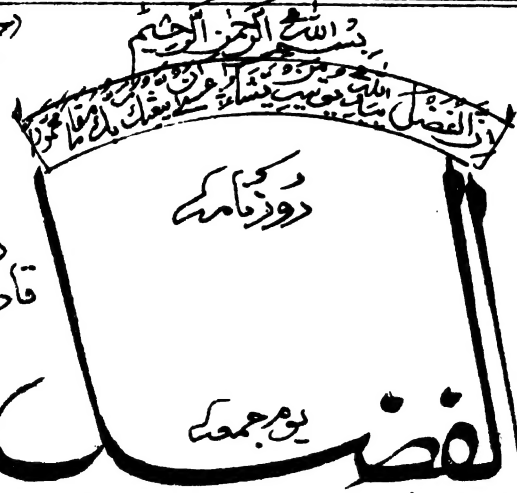 بسم الله الرحمن الرحيم
ان الفضل بيد الله يوتيه من يشاء عسى ان يبعثك ربك مقاما محمودا
روزنامہ
قاد
یوم جمعہ
الفضل